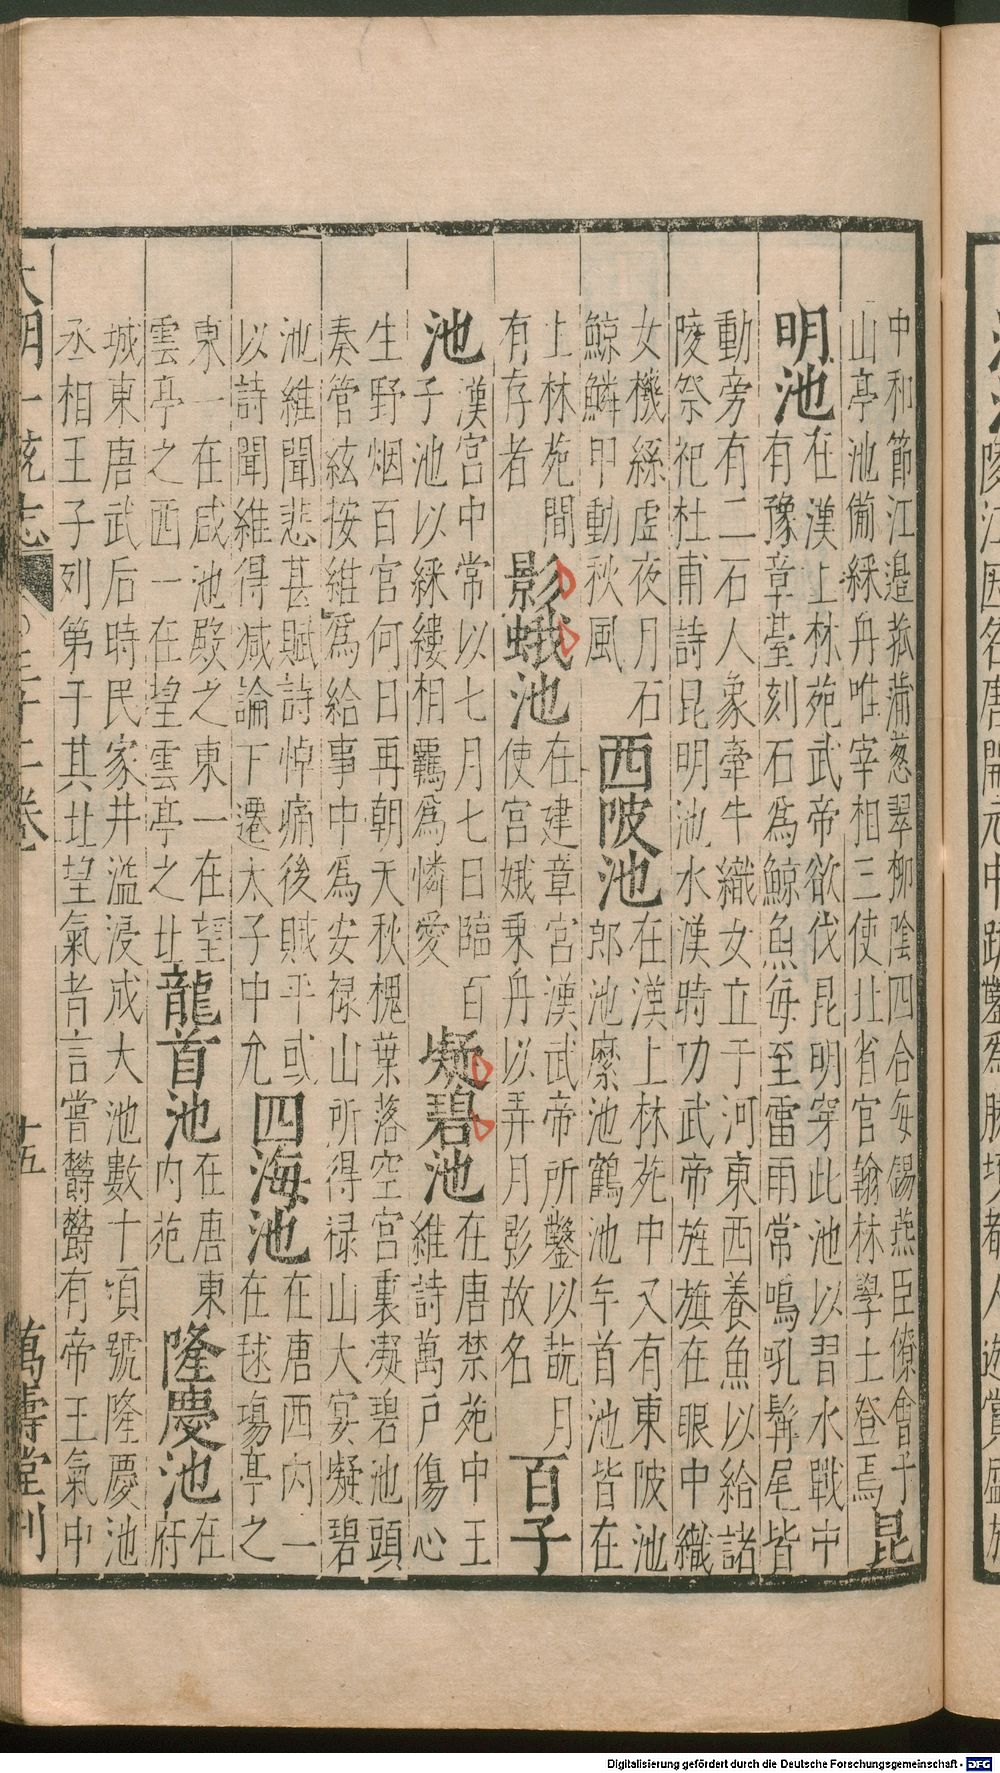 陵江因名唐開元中疏鑿為勝境都人遊賞盛於
中和節江邉菰蒲葱翠柳陰四合每錫燕臣僚會于
山亭池備綵舟唯宰相三使北省官翰林學士登焉
昆
明池
在漢上林苑武帝欲伐昆明穿此池以習水戰中
有豫章臺刻石為鯨魚每至雷雨常鳴吼鬐尾皆
動旁有二石人象牽牛織女立于河東西養魚以給諸
陵祭祀杜甫詩昆明池水漢時功武帝旌旗在眼中織
女機絲虚夜月石
鯨鱗甲動秋風
西陂池
在漢上林苑中又有東陂池
郎池麋池鶴池牟首池皆在
上林苑間
有存者
影蛾池
在建章宮漢武帝所鑿以翫月
使宮娥乗舟以弄月影故名
百子
池
漢宮中常以七月七日臨百
子池以綵縷相羈為憐愛
凝碧池
在唐禁苑中王
維詩萬戶傷心
生野烟百官何日再朝天秋槐葉落空宮裏凝碧池頭
奏管絃按維為給事中為安禄山所得禄山大宴凝碧
池維聞悲甚賦詩悼痛後賊平或
以詩聞維得减論下遷太子中允
四海池
在唐西内一
在毬塲亭之
東一在咸池殿之東一在望
雲亭之西一在望雲亭之北
龍首池
在唐東
内苑
隆慶池
在
府
城東唐武后時民家井溢浸成大池數十頃號隆慶池
丞相王子列第于其北望氣者言嘗欝欝有帝王氣中
大明一統志 三十二卷 十五 萬壽堂刊
Digitalisierung gefördert durch die Deutsche Forschungsgemeinschaft - DFG